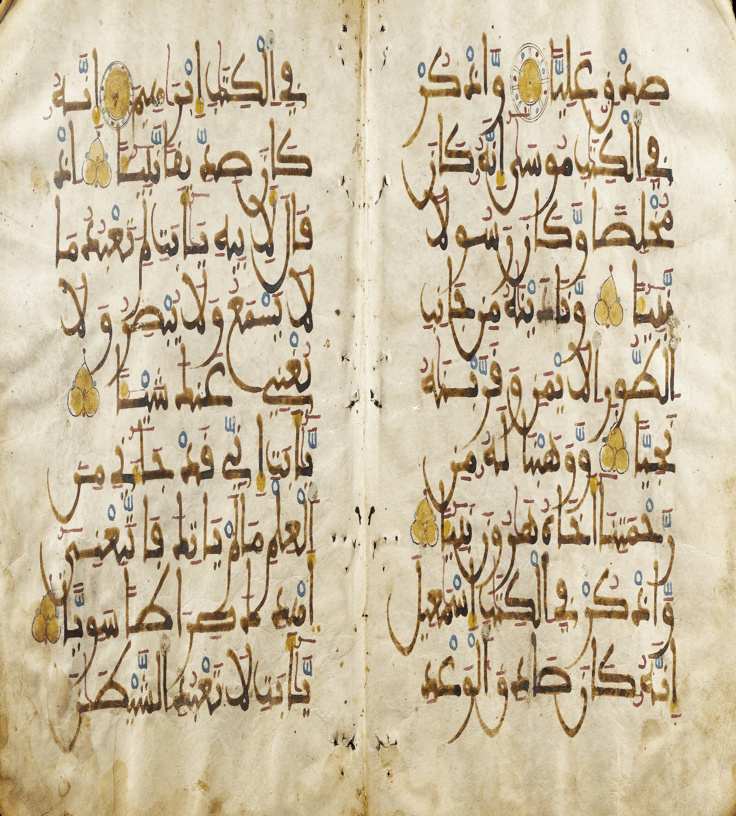 صِدْقٍ عَلِيًّا وَاذْكُرْ
فِي الْكِتَٰبِ مُوسَىٰ إِنَّهُ كَانَ
مُخْلِصًا وَكَانَ رَسُولًا
نَّبِيًّا وَنَٰدَيْنَٰهُ مِن جَانِبِ
الطُّورِ الْأَيْمَنِ وَقَرَّبْنَٰهُ
نَجِيًّا وَوَهَبْنَا لَهُ مِن
رَّحْمَتِنَا أَخَاهُ هَٰرُونَ نَبِيًّا
وَاذْكُرْ فِي الْكِتَٰبِ إِسْمَٰعِيلَ
إِنَّهُ كَانَ صَادِقَ الْوَعْدِ
فِي الْكِتَٰبِ إِبْرَٰهِيمَ إِنَّهُ
كَانَ صِدِّيقًا نَّبِيًّا إِذْ
قَالَ لِأَبِيهِ يَٰأَبَتِ لِمَ تَعْبُدُ مَا
لَا يَسْمَعُ وَلَا يُبْصِرُ وَلَا
يُغْنِي عَنكَ شَيْئًا
يَٰأَبَتِ إِنِّي قَدْ جَاءَنِي مِنَ
الْعِلْمِ مَا لَمْ يَأْتِكَ فَاتَّبِعْنِي
أَهْدِكَ صِرَٰطًا سَوِيًّا
يَٰأَبَتِ لَا تَعْبُدِ الشَّيْطَٰنَ